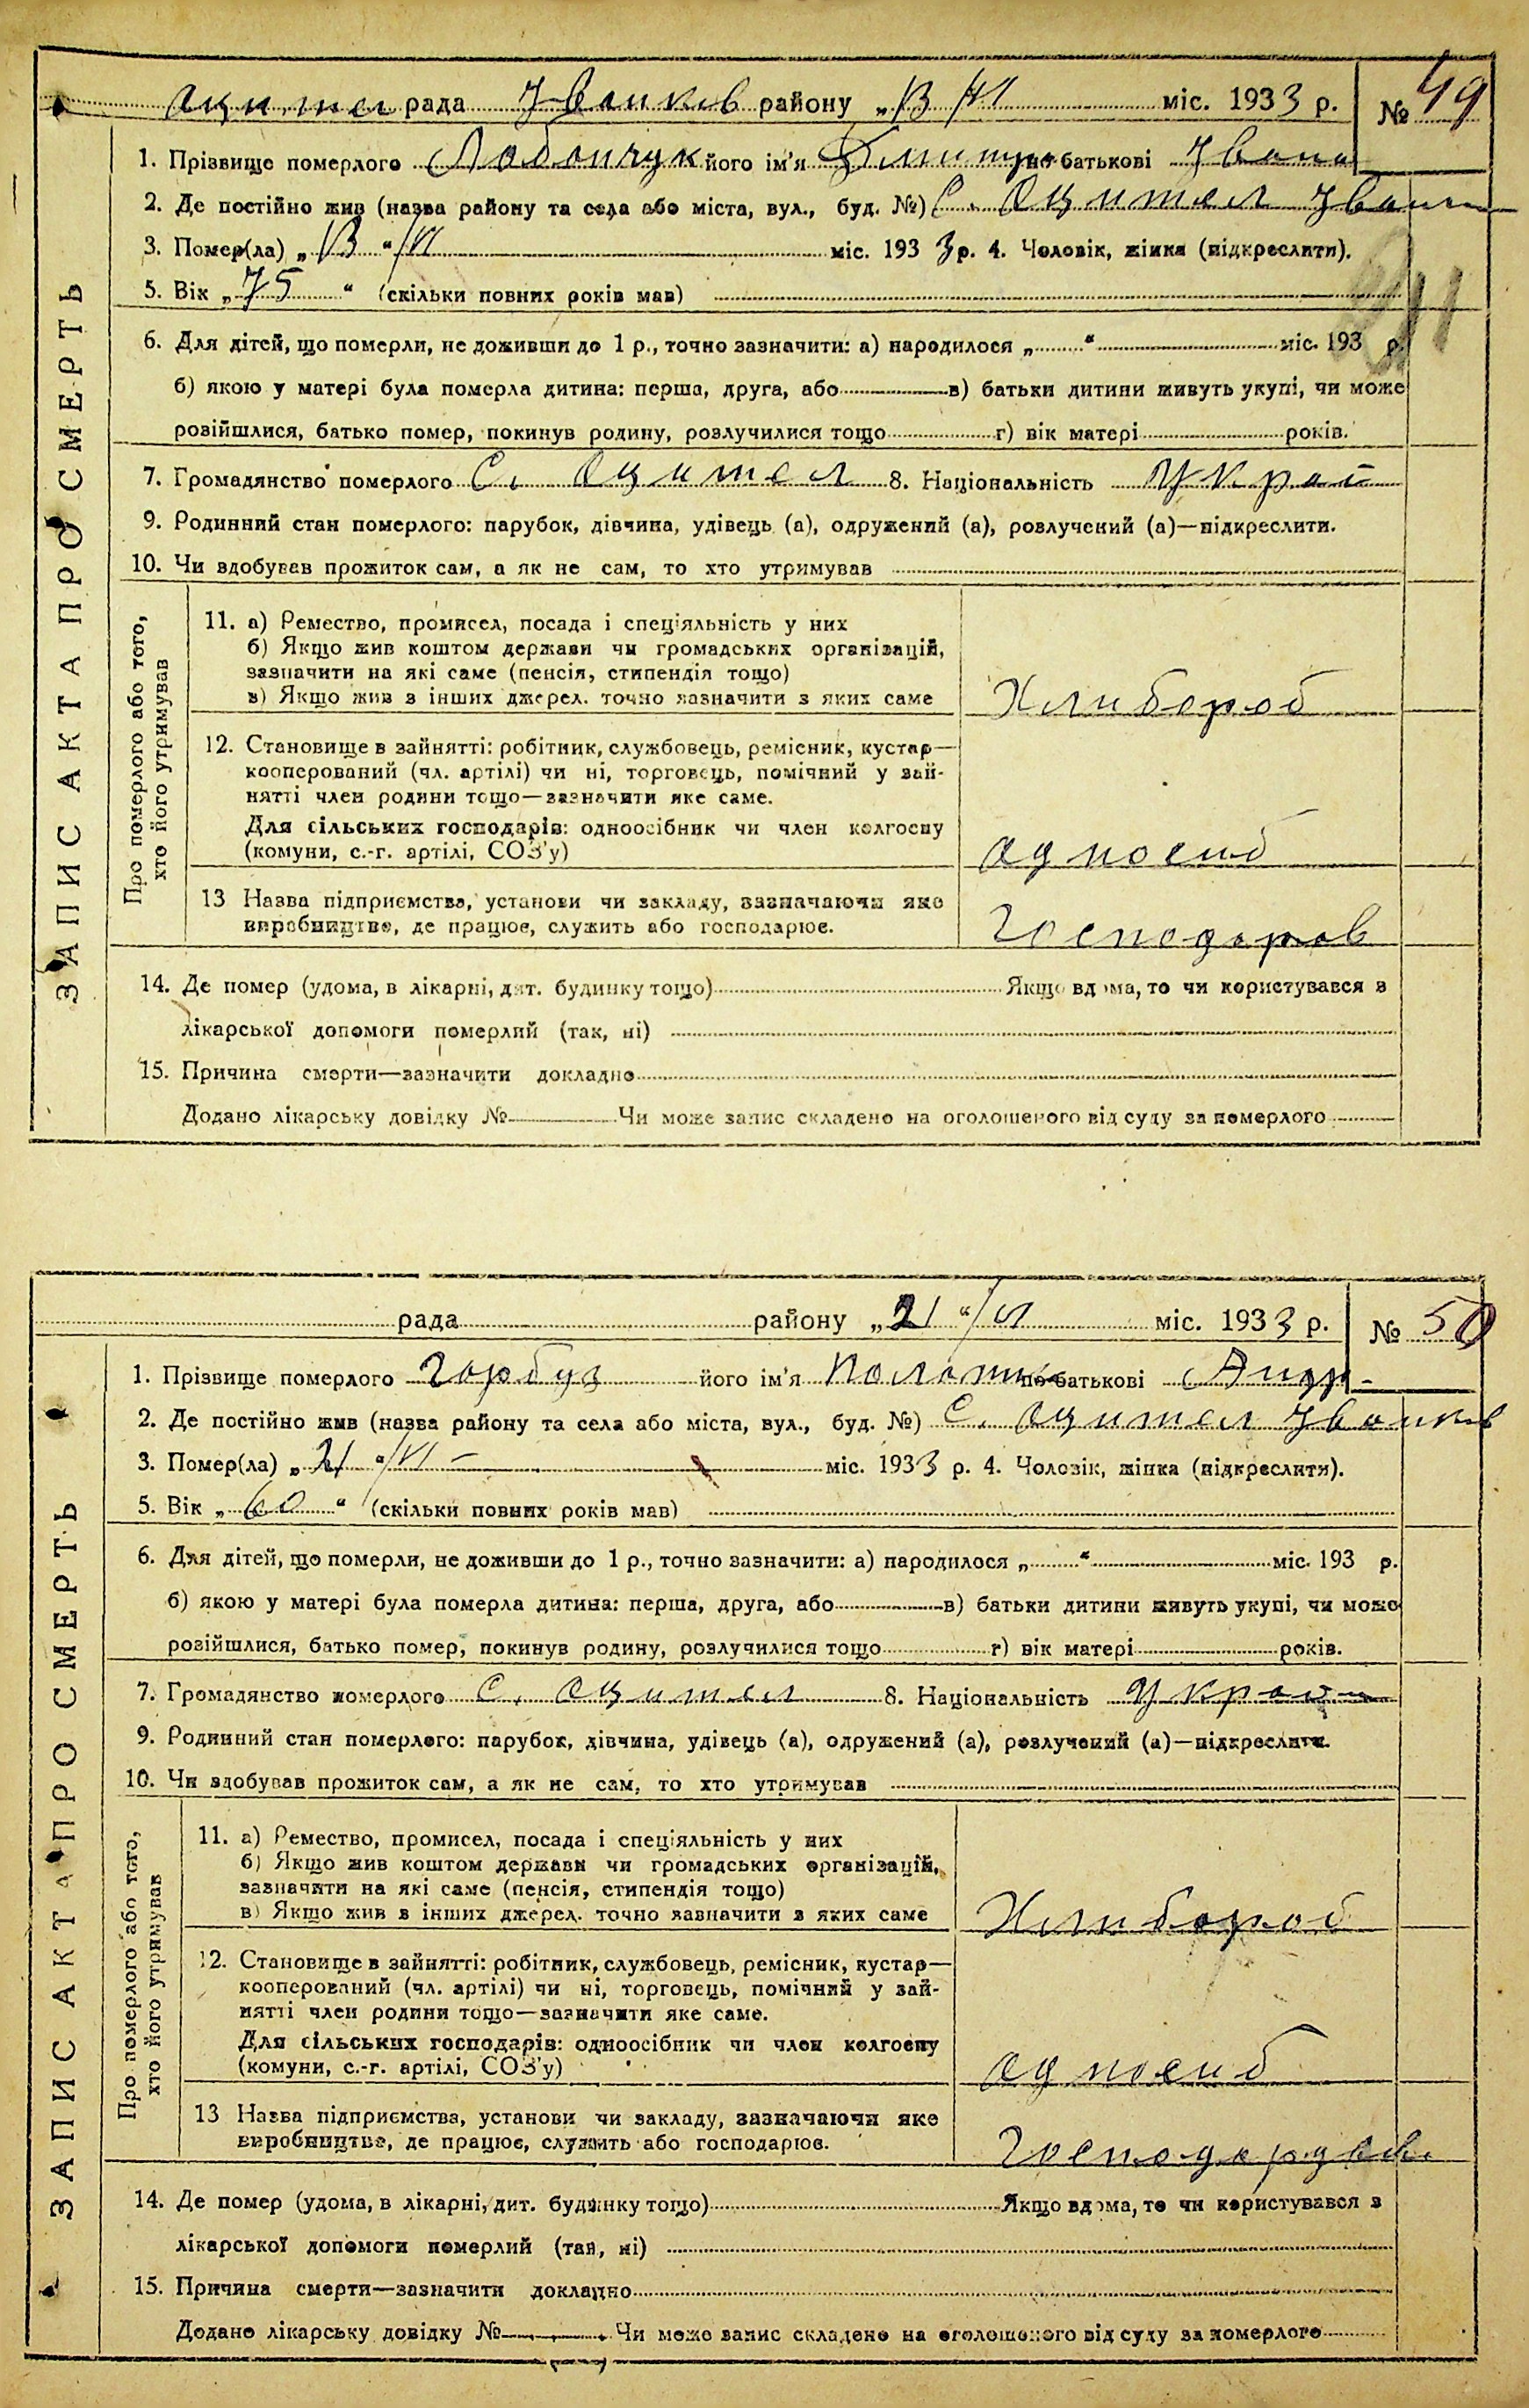 рада Іванків району „13/VI міс. 1933 р. № 49
1. Прізвище померлого його ім'я Дмитро по батькові Івана
2. Де постійно жив (назва району та села або міста, вул., буд. №) С. Оцител Іванк
3. Помер(ла) „13“/VI міс. 1933 р. 4. Чоловік, жінка (підкреслити).
5. Вік „75“ (скільки повних років мав)
6. Для дітей, що померли, не доживши до 1 р., точно зазначити: а) народилося „ “ міс. 193 р.
б) якою у матері була померла дитина: перша, друга, або в) батьки дитини живуть укупі, чи може
розійшлися, батько помер, покинув родину, розлучилися тощо г) вік матері років.
7. Громадянство померлого С. Оцител 8. Національність Украї
9. Родинний стан померлого: парубок, дівчина, удівець (а), одружений (а), розлучений (а)—підкреслити.
10. Чи здобував прожиток сам, а як не сам, то хто утримував
ЗАПИС АКТА ПРО СМЕРТЬ
Про померлого або того,
хто його утримував
11. а) Ремество, промисел, посада і спеціяльність у них
б) Якщо жив коштом держави чи громадських організацій,
зазначити на які саме (пенсія, стипендія тощо)
в) Якщо жив з інших джерел. точно зазначити з яких саме
Хлибороб
12. Становище в зайнятті: робітник, службовець, ремісник, кустар—
кооперований (чл. артілі) чи ні, торговець, помічний у зай-
нятті член родини тощо—зазначити яке саме.
Для сільських господарів: одноосібник чи член колгоспу
(комуни, с.-г. артілі, СОЗ'у)
односиб
13 Назва підприємства, установи чи закладу, зазначаючи яке
виробництво, де працює, служить або господарює.
Господарів
14. Де помер (удома, в лікарні, дит. будинку тощо) Якщо вдома, то чи користувався з
лікарської допомоги померлий (так, ні)
15. Причина смерти—зазначити докладно
Додано лікарську довідку № Чи може запис складено на оголошеного від суду за померлого
рада району „21“/VI міс. 1933 р. № 50
1. Прізвище померлого Гарбуз його ім'я по батькові Андр-
2. Де постійно жив (назва району та села або міста, вул., буд. №) С. Оцител Іванків
3. Помер(ла) „21“/VI – міс. 1933 р. 4. Чоловік, жінка (підкреслити).
5. Вік „60“ (скільки повних років мав)
6. Для дітей, що померли, не доживши до 1 р., точно зазначити: а) народилося „ “ міс. 193 р.
б) якою у матері була померла дитина: перша, друга, або в) батьки дитини живуть укупі, чи може
розійшлися, батько помер, покинув родину, розлучилися тощо г) вік матері років.
7. Громадянство померлого С. Оцител 8. Національність
9. Родинний стан померлого: парубок, дівчина, удівець (а), одружений (а), розлучений (а)—підкреслити.
10. Чи здобував прожиток сам, а як не сам, то хто утримував
ЗАПИС АКТА ПРО СМЕРТЬ
Про померлого або того,
хто його утримував
11. а) Ремество, промисел, посада і спеціяльність у них
б) Якщо жив коштом держави чи громадських організацій,
зазначити на які саме (пенсія, стипендія тощо)
в) Якщо жив з інших джерел. точно зазначити з яких саме
Хлибороб
12. Становище в зайнятті: робітник, службовець, ремісник, кустар—
кооперований (чл. артілі) чи ні, торговець, помічний у зай-
нятті член родини тощо—зазначити яке саме.
Для сільських господарів: одноосібник чи член колгоспу
(комуни, с.-г. артілі, СОЗ'у)
односиб
13 Назва підприємства, установи чи закладу, зазначаючи яке
виробництво, де працює, служить або господарює.
14. Де помер (удома, в лікарні, дит. будинку тощо) Якщо вдома, то чи користувався з
лікарської допомоги померлий (так, ні)
15. Причина смерти—зазначити докладно
Додано лікарську довідку № Чи може запис складено на оголошеного від суду за померлого